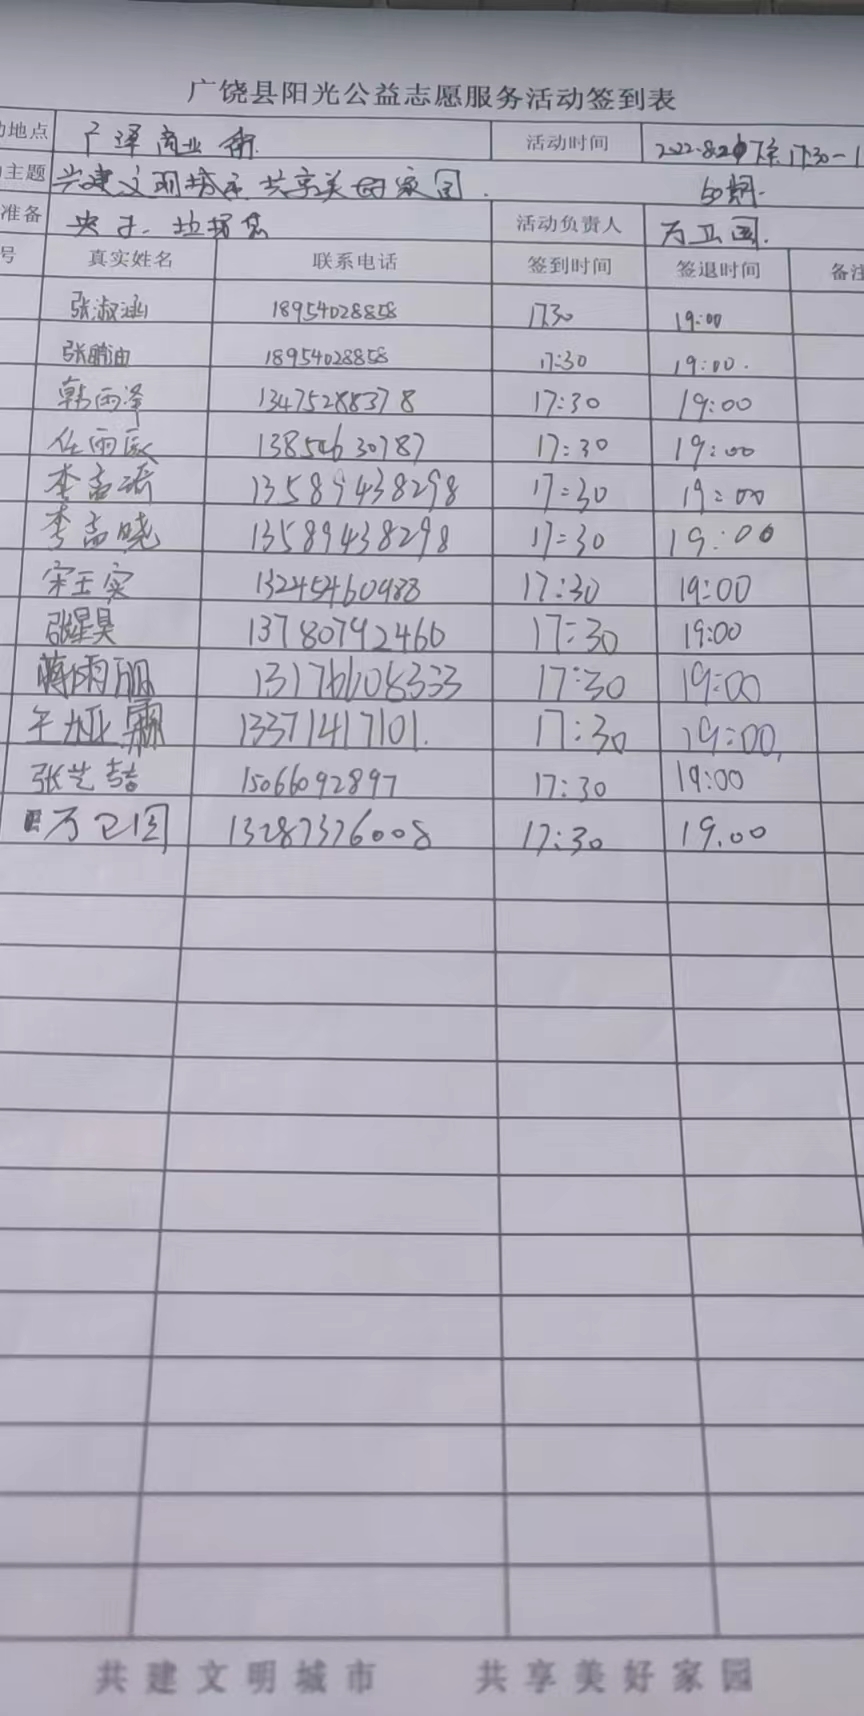 广饶县阳光公益志愿服务活动签到表
动地点 广泽商业街 活动时间 2022.8.2 17:30-1
主题 共建文明城市 共享美好家园.
准备 夹子、垃圾袋 活动负责人 万卫国.
号 真实姓名 联系电话 签到时间 签退时间 备注
张淑涵 18954028858 1730 19:00
18954028858 17:30 19:00.
韩雨泽 13475288378 17:30 19:00
任雨 13854630787 17:30 19:00
李孟瑶 13589438298 17:30 19:00
李孟晓 13589438298 17:30 19:00
宋玉实 13245460988 17:30 19:00
张星昊 13780792460 17:30 19:00
蒋雨丽 13176608333 17:30 19:00
王娅霖 13371417101. 17:30 19:00,
张艺喆 15066092897 17:30 19:00
万卫国 13287376008 17:30 19.00
共建文明城市 共享美好家园